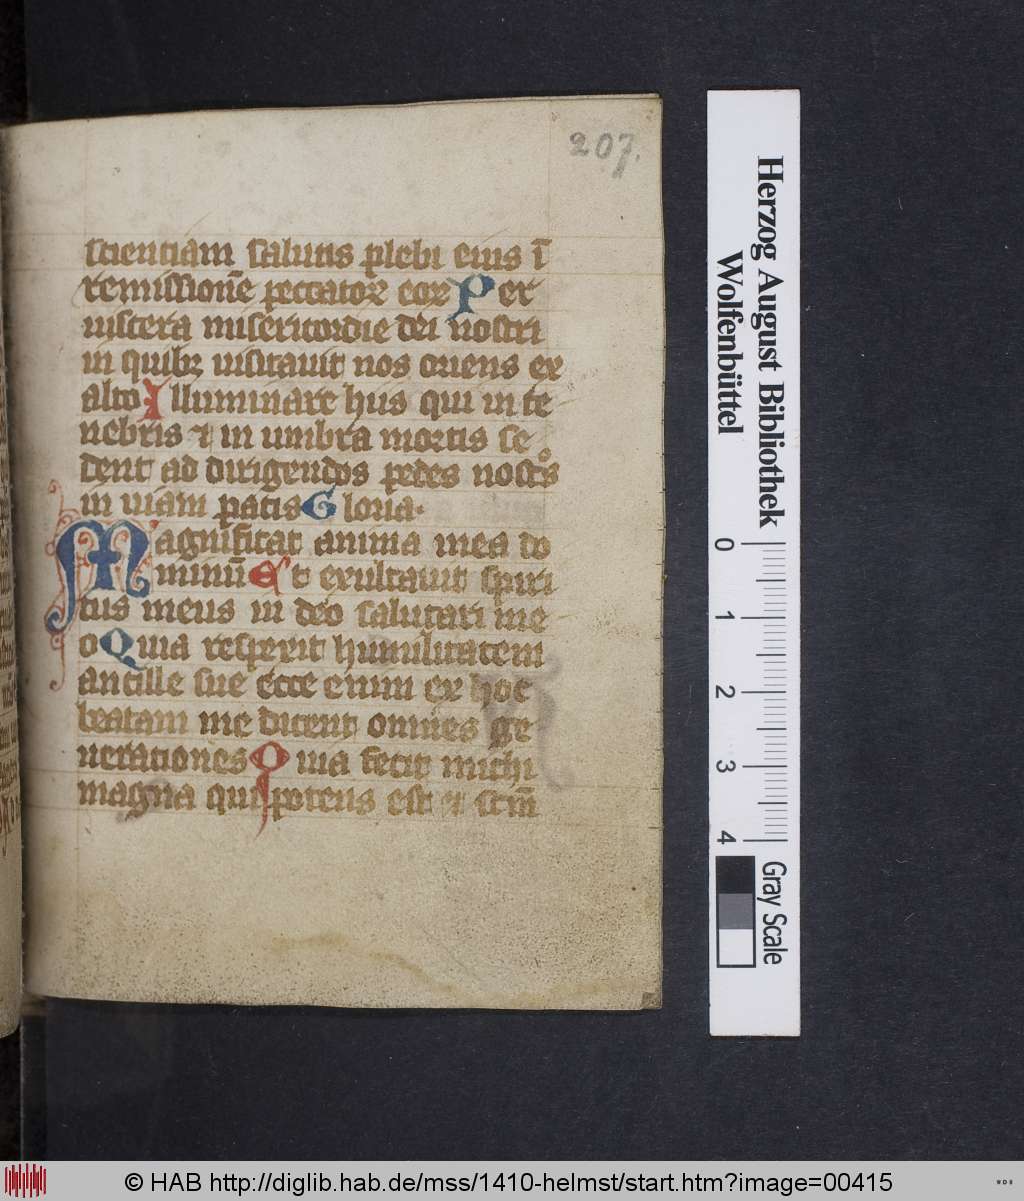 207.
scientiam salutis plebi eius ī
remissionē peccatoꝝ eoꝝ Per
uiscera misericordie dei nostri
in quibꝫ uisitauit nos oriens ex
alto Illuminare hiis qui in te
nebris ⁊ in umbra mortis se
dent ad dirigendos pedes nostͦs
in uiam pacis Gloria·
Magnificat anima mea do
minū Et exultauit spiri
tus meus in deo salutari me
o Quia respexit humilitatem
ancille sue ecce enim ex hoc
beatam me dicent omnes ge
nerationes Quia fecit michi
magna qui potens est ⁊ scm̄
Herzog August Bibliothek
Wolfenbüttel
0 1 2 3 4
Gray Scale
© HAB http://diglib.hab.de/mss/1410-helmst/start.htm?image=00415